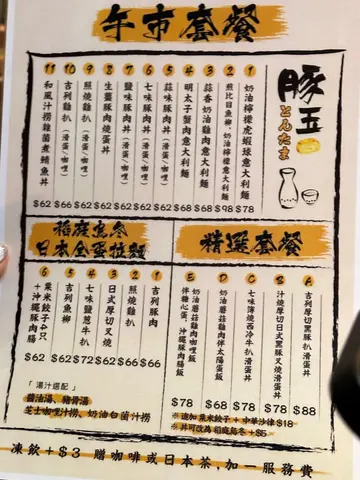 午市套餐
豚玉
とんたま
1 奶油檸檬虎蝦球意大利麵 $78
2 煎比目魚柳、奶油檸檬意大利麵 $98
3 蒜香奶油雞肉意大利麵 $68
4 明太子蟹肉意大利麵 $68
5 蒜味豚肉丼（滑蛋/咖喱） $62
6 七味豚肉丼（滑蛋/咖喱） $62
7 鹽味豚肉丼（滑蛋/咖喱） $62
8 生薑豚肉燒蛋丼 $62
9 照燒雞扒（滑蛋/咖喱） $62
10 吉列雞扒（滑蛋/咖喱） $66
11 和風汁撈雜菌煮鯖魚丼 $62
精選套餐
A 吉列厚切黑豚扒滑蛋丼 $88
B 汁燒厚切日式黑豚叉燒滑蛋丼 $78
C 七味薄燒西冷牛扒滑蛋丼 $78
D 奶油蘑菇雞肉伴太陽蛋飯 $68
E 奶油蘑菇雞肉咖喱飯
伴糖心蛋、沖繩豚肉腸飯 $78
※ 追加 粟米餃子+中華沙律$18
※ 丼可改為 稻庭烏冬 +$5
稻庭烏冬
日本全蛋拉麵
1 吉列豚肉 $66
2 照燒雞扒 $66
3 日式厚切叉燒 $62
4 七味鹽蔥牛扒 $72
5 吉列魚柳 $62
6 粟米餃子4只
+沖繩豚肉腸 $62
「湯汁搭配」
醬油湯、豬骨湯
芝士咖喱汁撈、奶油白菌汁撈
凍飲+$3 贈咖啡或日本茶,加一服務費